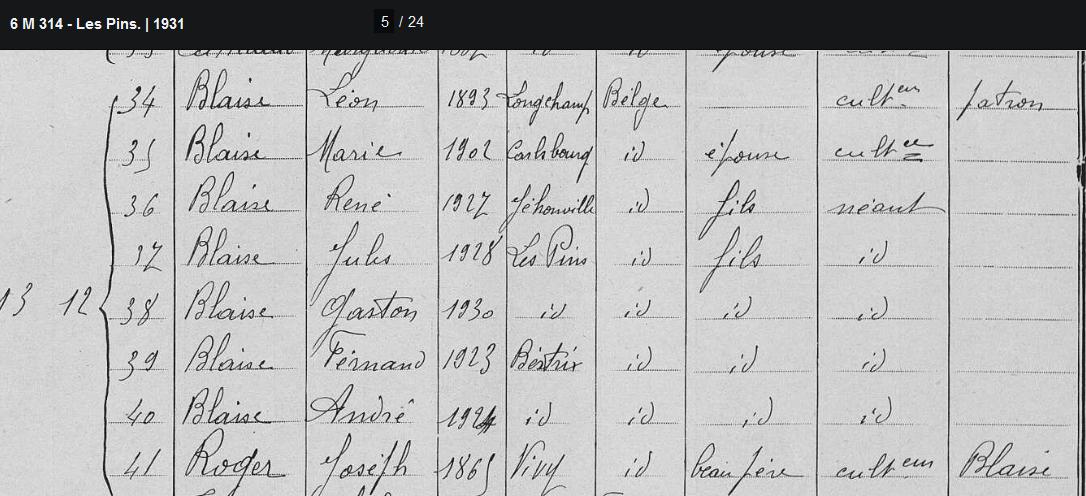 6 M 314 - Les Pins. | 1931 5 / 24
34 Blaise Léon 1893 Longchamp Belge cult.eur patron
35 Blaise Marie 1902 Carlsbourg id épouse cult.ce
36 Blaise René 1927 Jéhonville id fils néant
37 Blaise Jules 1928 Les Pins id fils id
13 12 38 Blaise Gaston 1930 id id id id
39 Blaise Fernand 1923 Bertrix id id id
40 Blaise André 1924 id id id id
41 Roger Joseph 1865 Vivy id beau père cult.eur Blaise